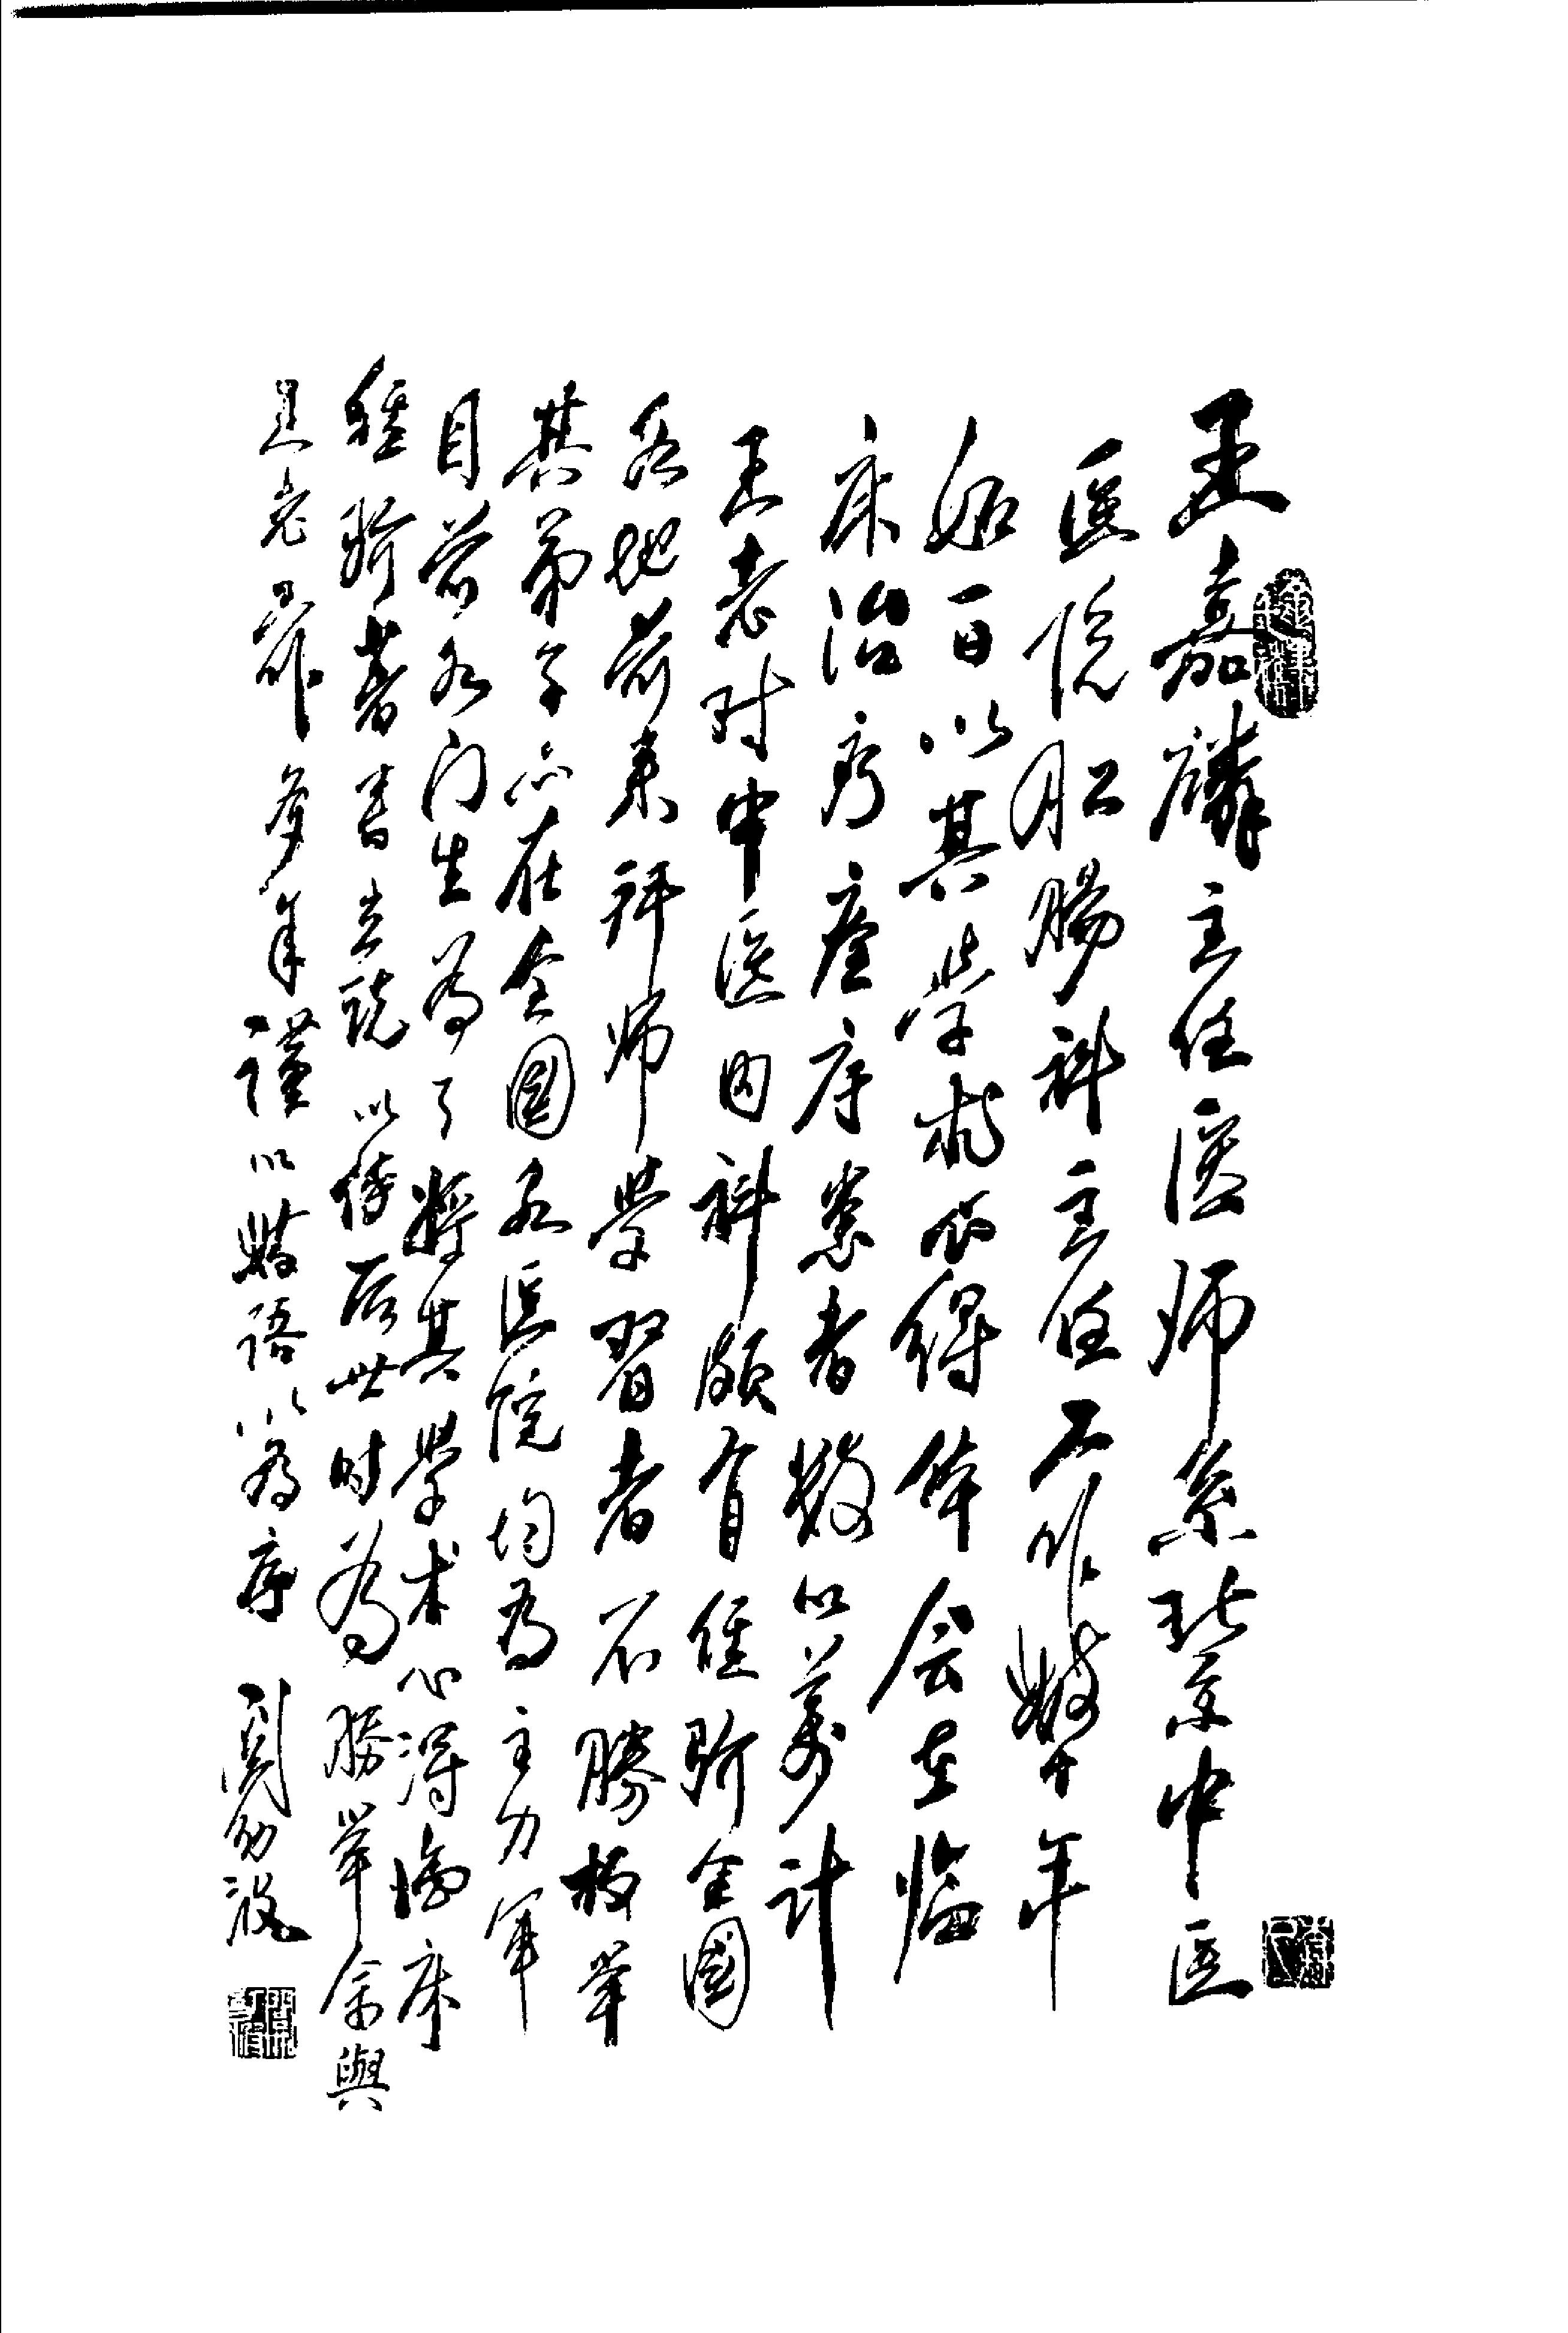 王嘉麟主任医师系北京中医
医院肛肠科主任工作数十年
如一日以其学术心得体会在临
床治疗痊疗患者数以万计
王老对中医内科颇有经验全国
各地前来拜师学习者不胜枚举
其弟子亦在全国各医院均为主力军
目前各门生为了将其学术心得临床
经验著书立说以传后世时为胜举余与
王老工作多年谨以数语以为序 关幼波